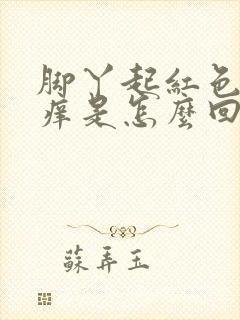 脚丫起紅色
痒是怎麼回
蘇弄玉